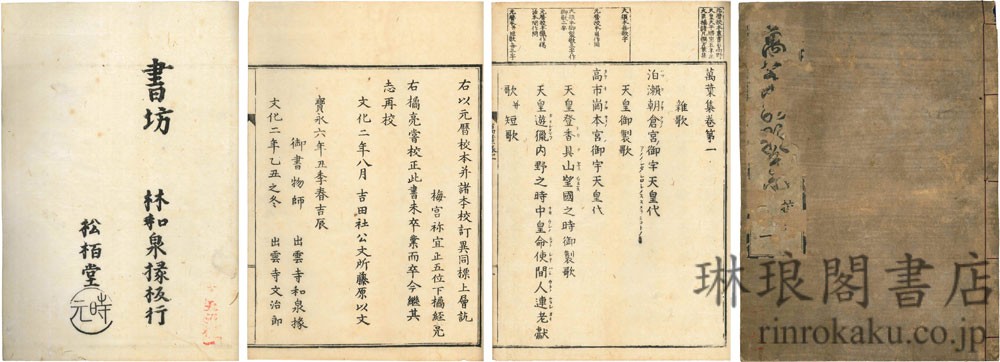 書坊
林和泉掾板行
松栢堂
時元
右以元暦校本并諸李校訂異同標上層訖
梅宮祢宜正五位下橘經亮
右橘亮嘗校正此書未卒業而卒今継其
志再校
文化二年八月 吉田社公文所藤原以文
寶永六年丑季春吉辰
御書物師 出雲寺和泉掾
文化二年乙丑之冬 出雲寺文治郎
萬葉集卷第一
雜歌
泊瀬朝倉宮御宇天皇代
天皇御製歌
高市崗本宮御宇天皇代
天皇登香具山望國之時御製歌
天皇遊獵内野之時中皇命使間人連老獻
歌并短歌
琳琅閣書店
rinrokaku.co.jp